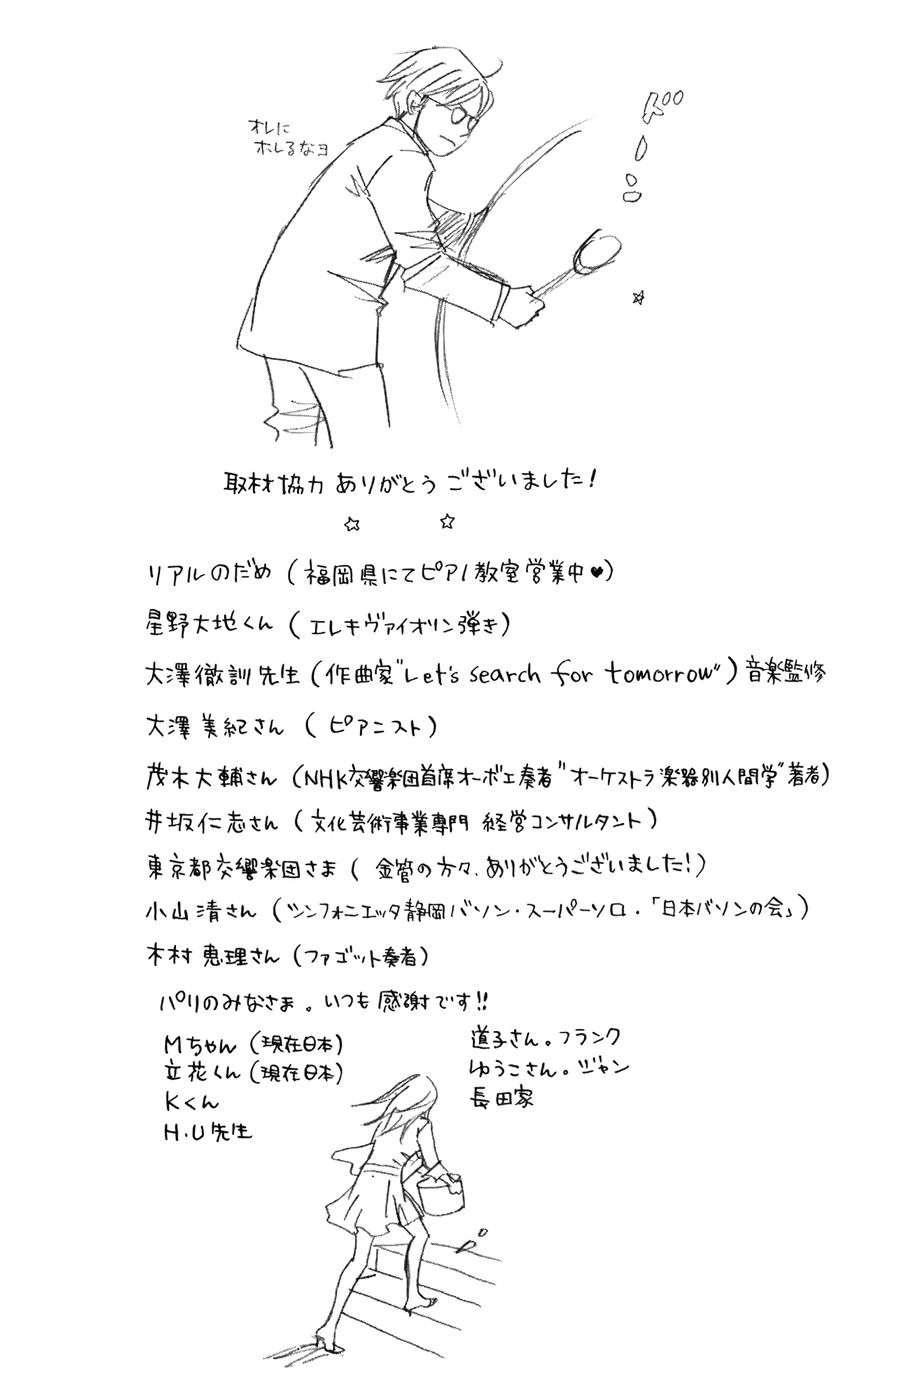 オレに
ホレるなヨ
ド°°ーン
取材協力 ありがとう ございました!
☆ ☆
リアルのだめ (福岡県にてピアノ教室営業中♥)
星野大地くん (エレキヴァイオリン弾き)
大澤徹訓先生 (作曲家"Let's search for tomorrow") 音楽監修
大澤美紀さん (ピアニスト)
茂木大輔さん (NHK交響楽団首席オーボエ奏者"オーケストラ楽器別人間学"著者)
井坂仁志さん (文化芸術事業専門 経営コンサルタント)
東京都交響楽団さま (金管の方々、ありがとうございました!)
小山清さん (シンフォニエッタ静岡バソン・スーパーソロ・「日本バソンの会」)
木村恵理さん (ファゴット奏者)
パリのみなさま。いつも感謝です!!
Mちゃん (現在日本)
立花くん (現在日本)
Kくん
H.U先生
道子さん。フランク
ゆうこさん。ジャン
長田家